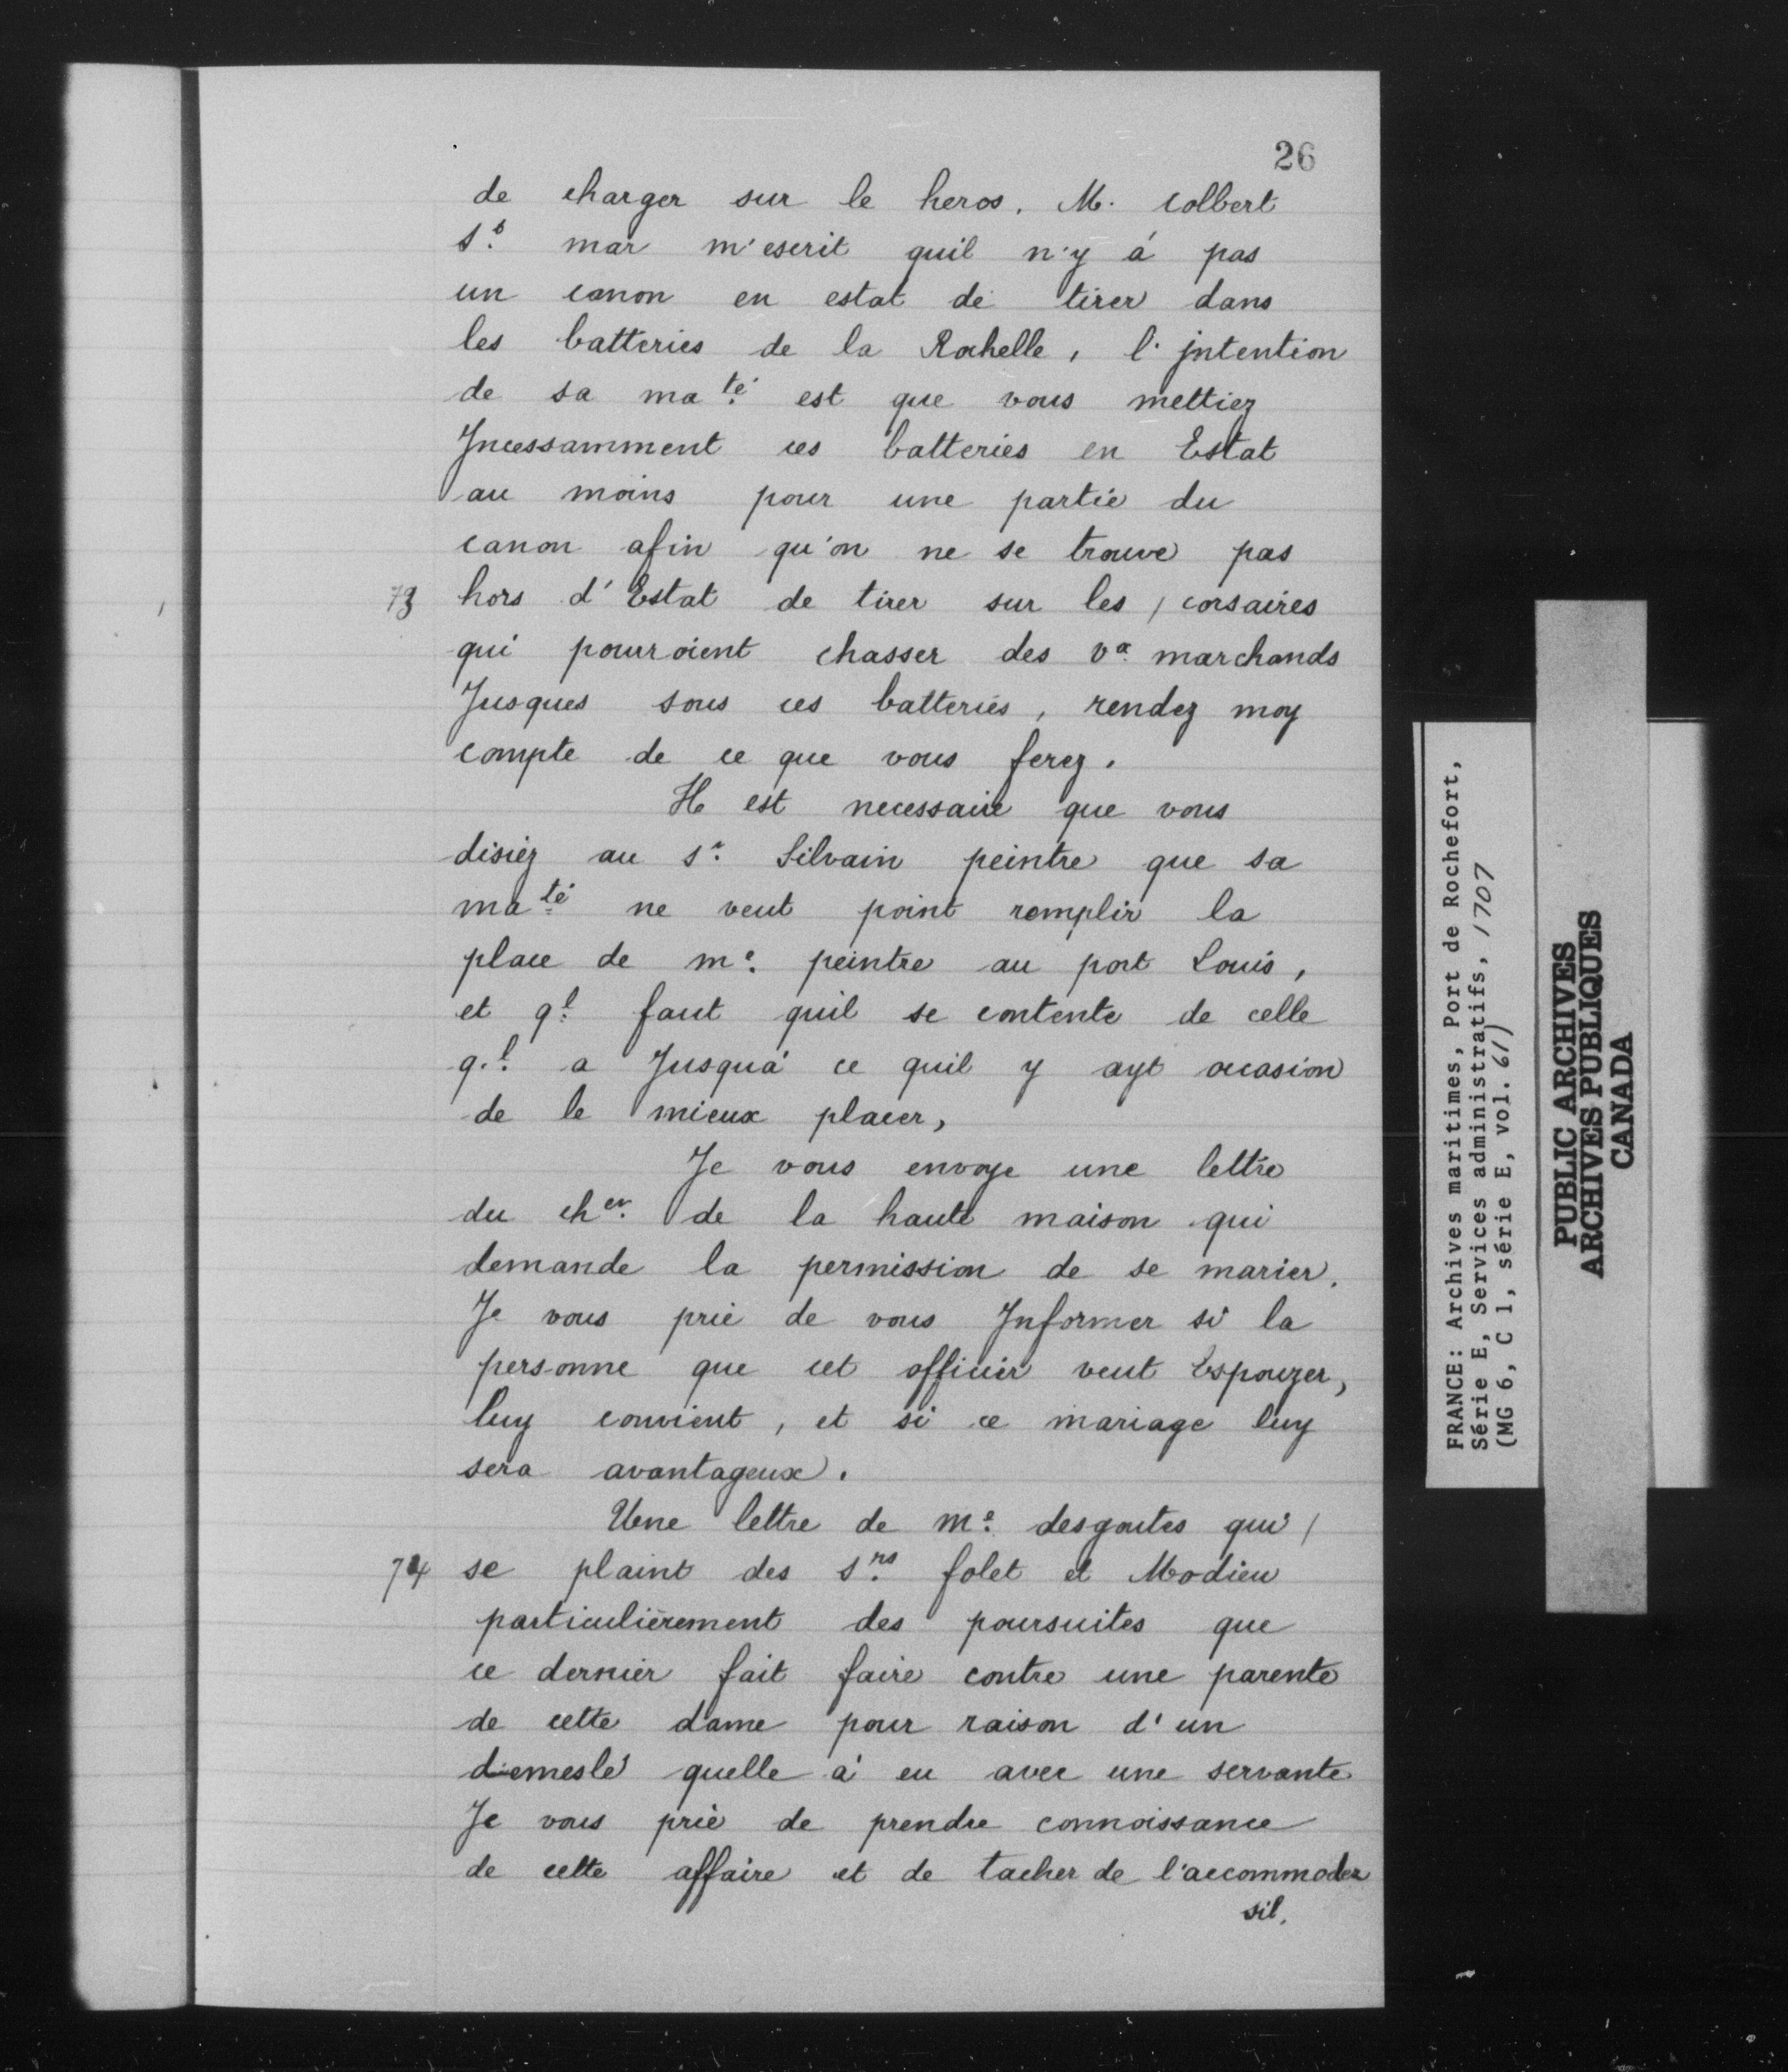 26
de charger sur le heros. M. Colbert
St. mar m'escrit quil n'y á pas
un canon en estat de tirer dans
les batteries de la Rochelle, l'jntention
de sa maté est que vous mettiez
Jncessamment ces batteries en Estat
au moins pour une partie du
canon afin qu'on ne se trouve pas
73 hors d'Estat de tirer sur les / corsaires
qui pourroient chasser des vx marchands
Jusques sous ces batteries, rendez moy
compte de ce que vous ferez.
Il est necessaire que vous
disiez au sr. Silvain peintre que sa
maté ne veut point remplir la
place de me. peintre au port Louis,
et ql. faut quil se contente de celle
q.l. a Jusqu'á ce quil y ayt occasion
de le mieux placer,
Je vous envoye une lettre
du cher. de la haute maison qui
demande la permission de se marier.
Je vous prie de vous Jnformer si la
personne que cet officier veut Espouzer,
luy convient, et si ce mariage luy
sera avantageux.
Une lettre de me. desgoutes qui /
74 se plaint des srs. folet et Modieu
particulièrement des poursuites que
ce dernier fait faire contre une parente
de cette dame pour raison d'un
demeslé quelle á eu avec une servante
Je vous prie de prendre connoissance
de cette affaire et de tacher de l'accommoder
sil.
FRANCE: Archives maritimes, Port de Rochefort,
Série E, Services administratifs, 1707
(MG 6, C 1, série E, vol. 61)
PUBLIC ARCHIVES
ARCHIVES PUBLIQUES
CANADA